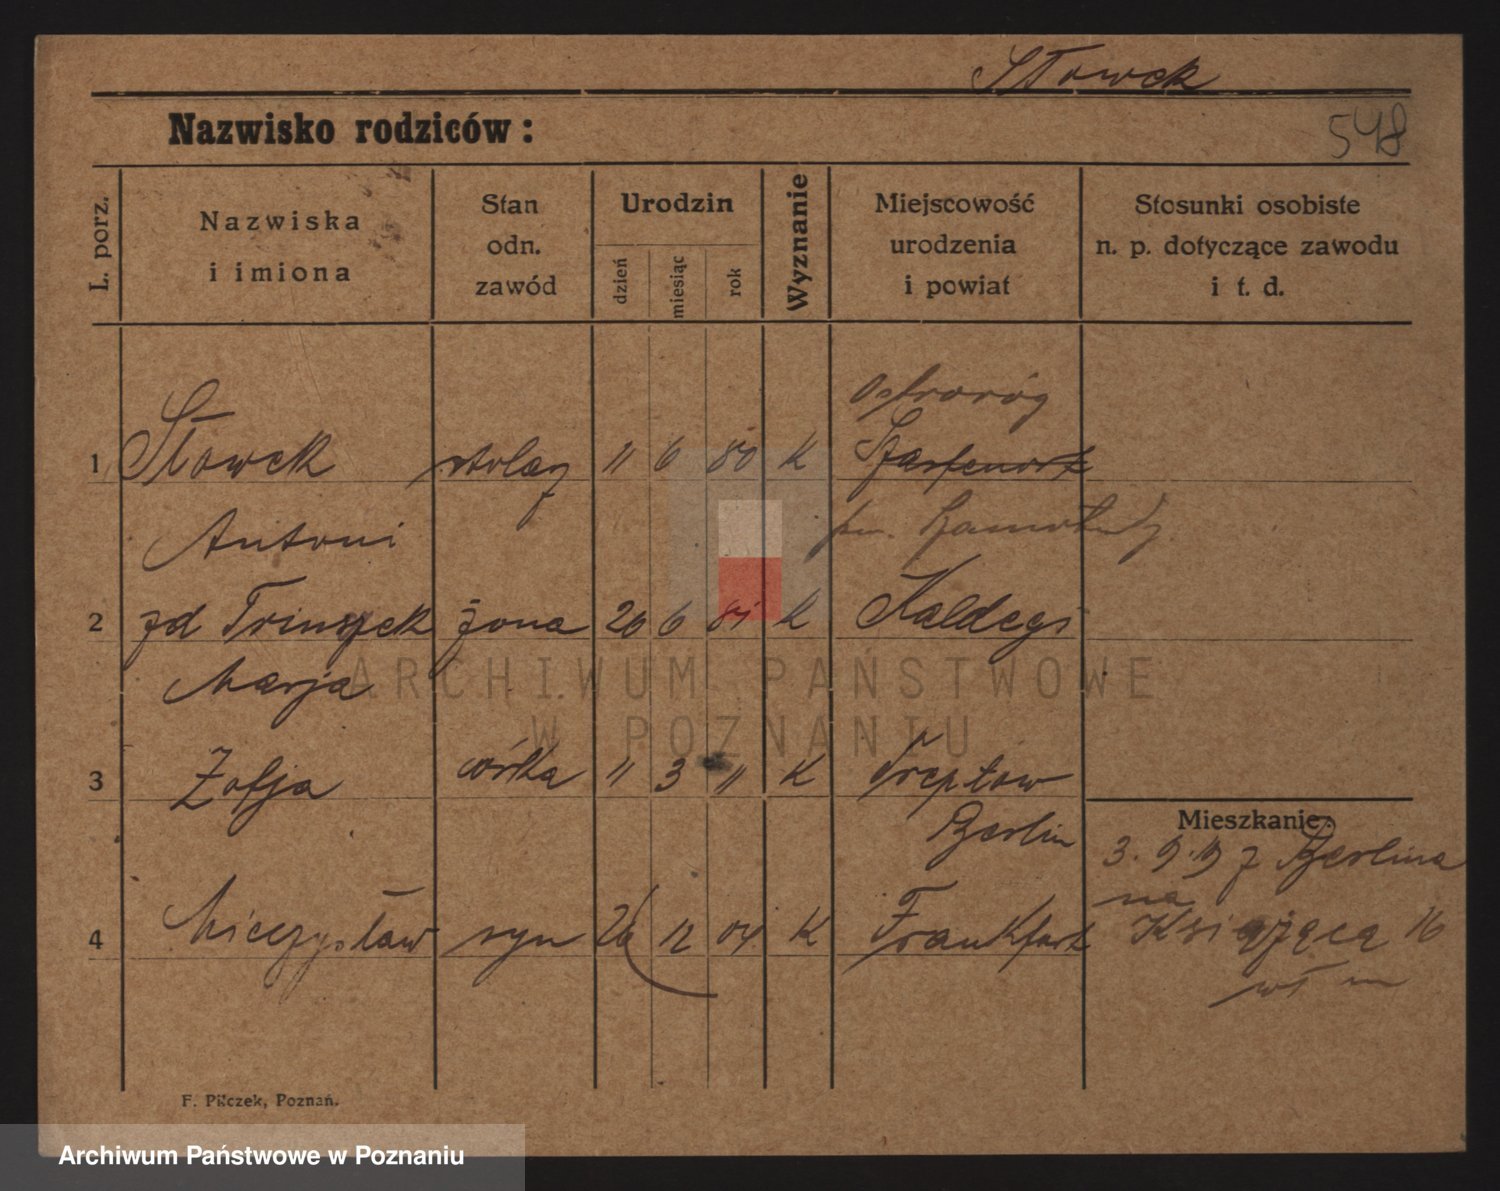 Słowek
Nazwisko rodziców:
548
L. porz.
Nazwiska
i imiona
Stan
odn.
zawód
Urodzin
dzień
miesiąc
rok
Wyznanie
Miejscowość
urodzenia
i powiat
Stosunki osobiste
n. p. dotyczące zawodu
i t. d.
Ostroróg
1 Słowek stolarz 11 6 80 K Szarfenort
Antoni pow. Szamotuły
2 zd Trinszek żona 26 6 81 K
Marja
ARCHIWUM PAŃSTWOWE
W POZNANIU
3 Zofja córka 11 3 11 K Treptow
Berlin
Mieszkanie:
3. 9. 19 z Berlina
na
4 Mieczysław syn 26 12 04 K Frankfurt Książęca 16
wł m
F. Pilczek, Poznań.
Archiwum Państwowe w Poznaniu